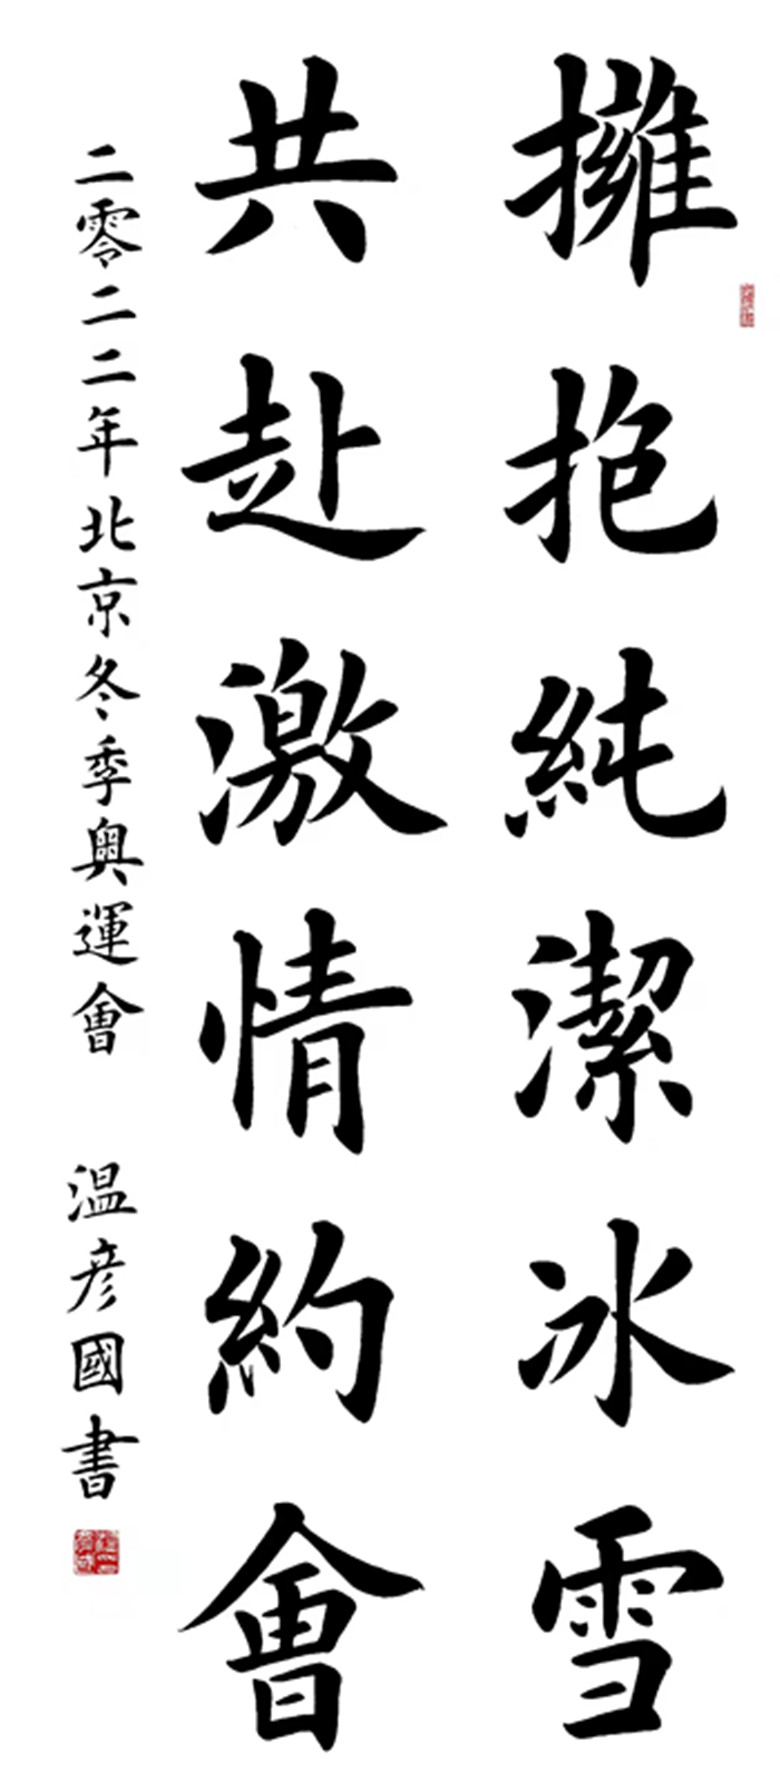 擁抱純潔冰雪
共赴激情約會
二零二二年北京冬季奧運會 温彥國書